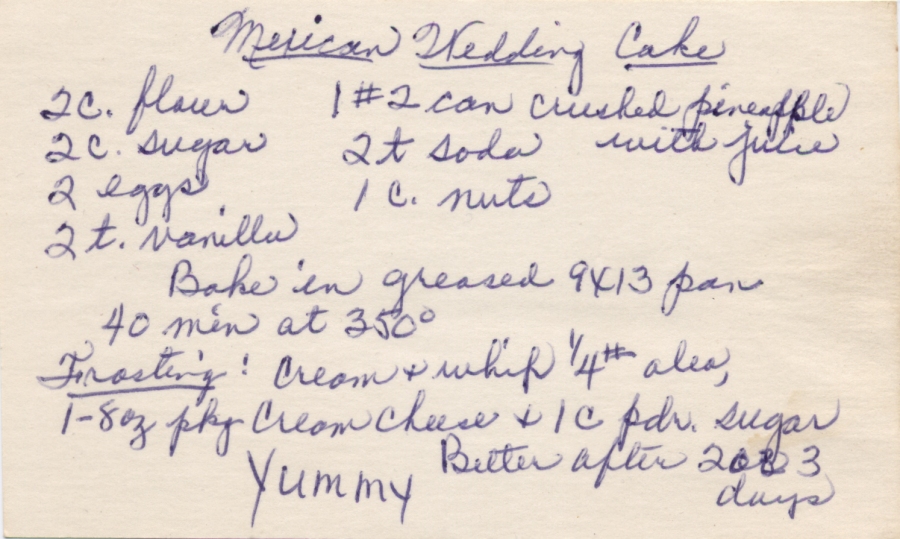 Mexican Wedding Cake
2c. flour 1 #2 can crushed pineapple
2c. sugar 2t soda with juice
2 eggs 1 c. nuts
2 t. vanilla
Bake in greased 9X13 pan
40 min at 350°
Frosting: Cream & whip 1/4# oleo,
1-8oz pkg Cream Cheese & 1 C pdr. sugar
Better after 2 or 3
Yummy days